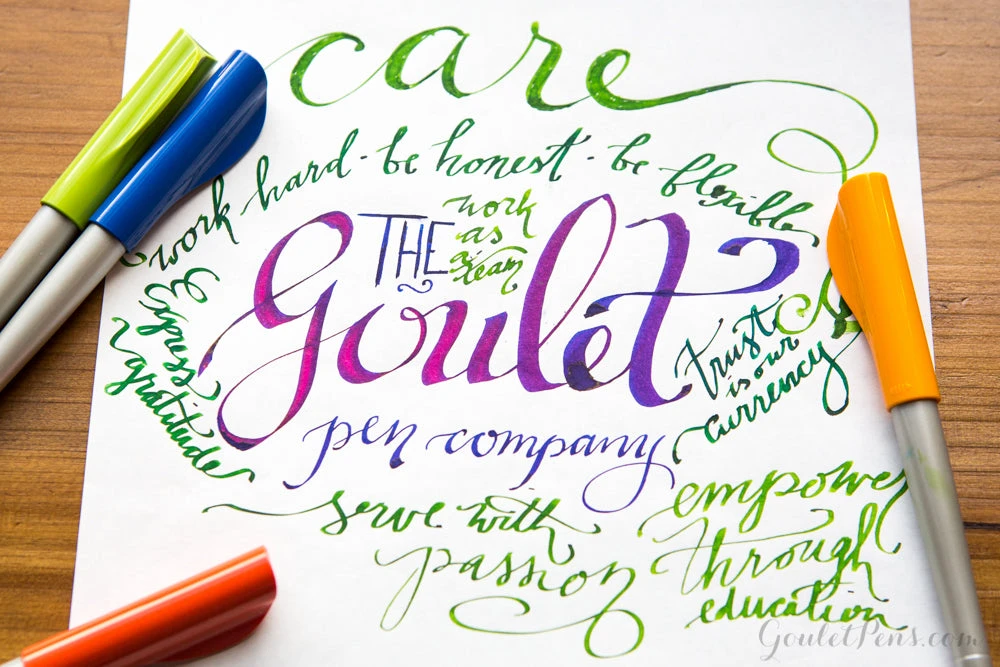 care
work hard · be honest · be flexible
THE
work
as
a
team
Goulet
pen company
Express
gratitude
trust
is our
currency
serve with
passion
empower
through
education
GouletPens.com